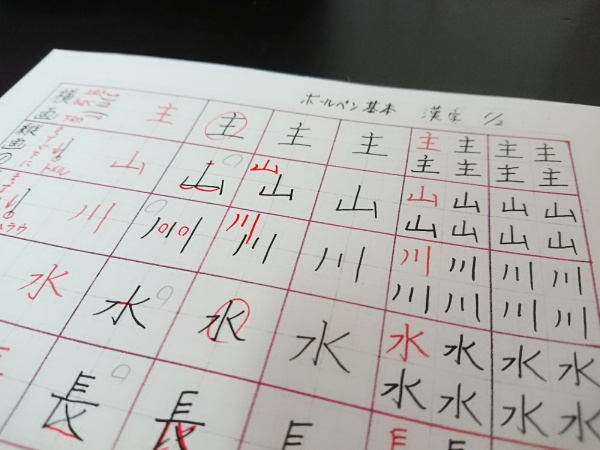 ボールペン基本 漢字 1/2
横画 主 主 主 主 主 主 主 主
主 主 主 主
縦画 山 山 山 山 山 山 山 山 山
山 山 山 山
川 川 川 川 川 川 川 川 川
川 川 川 川
水 水 水 水 水 水 水 水
水 水 水 水
長 長